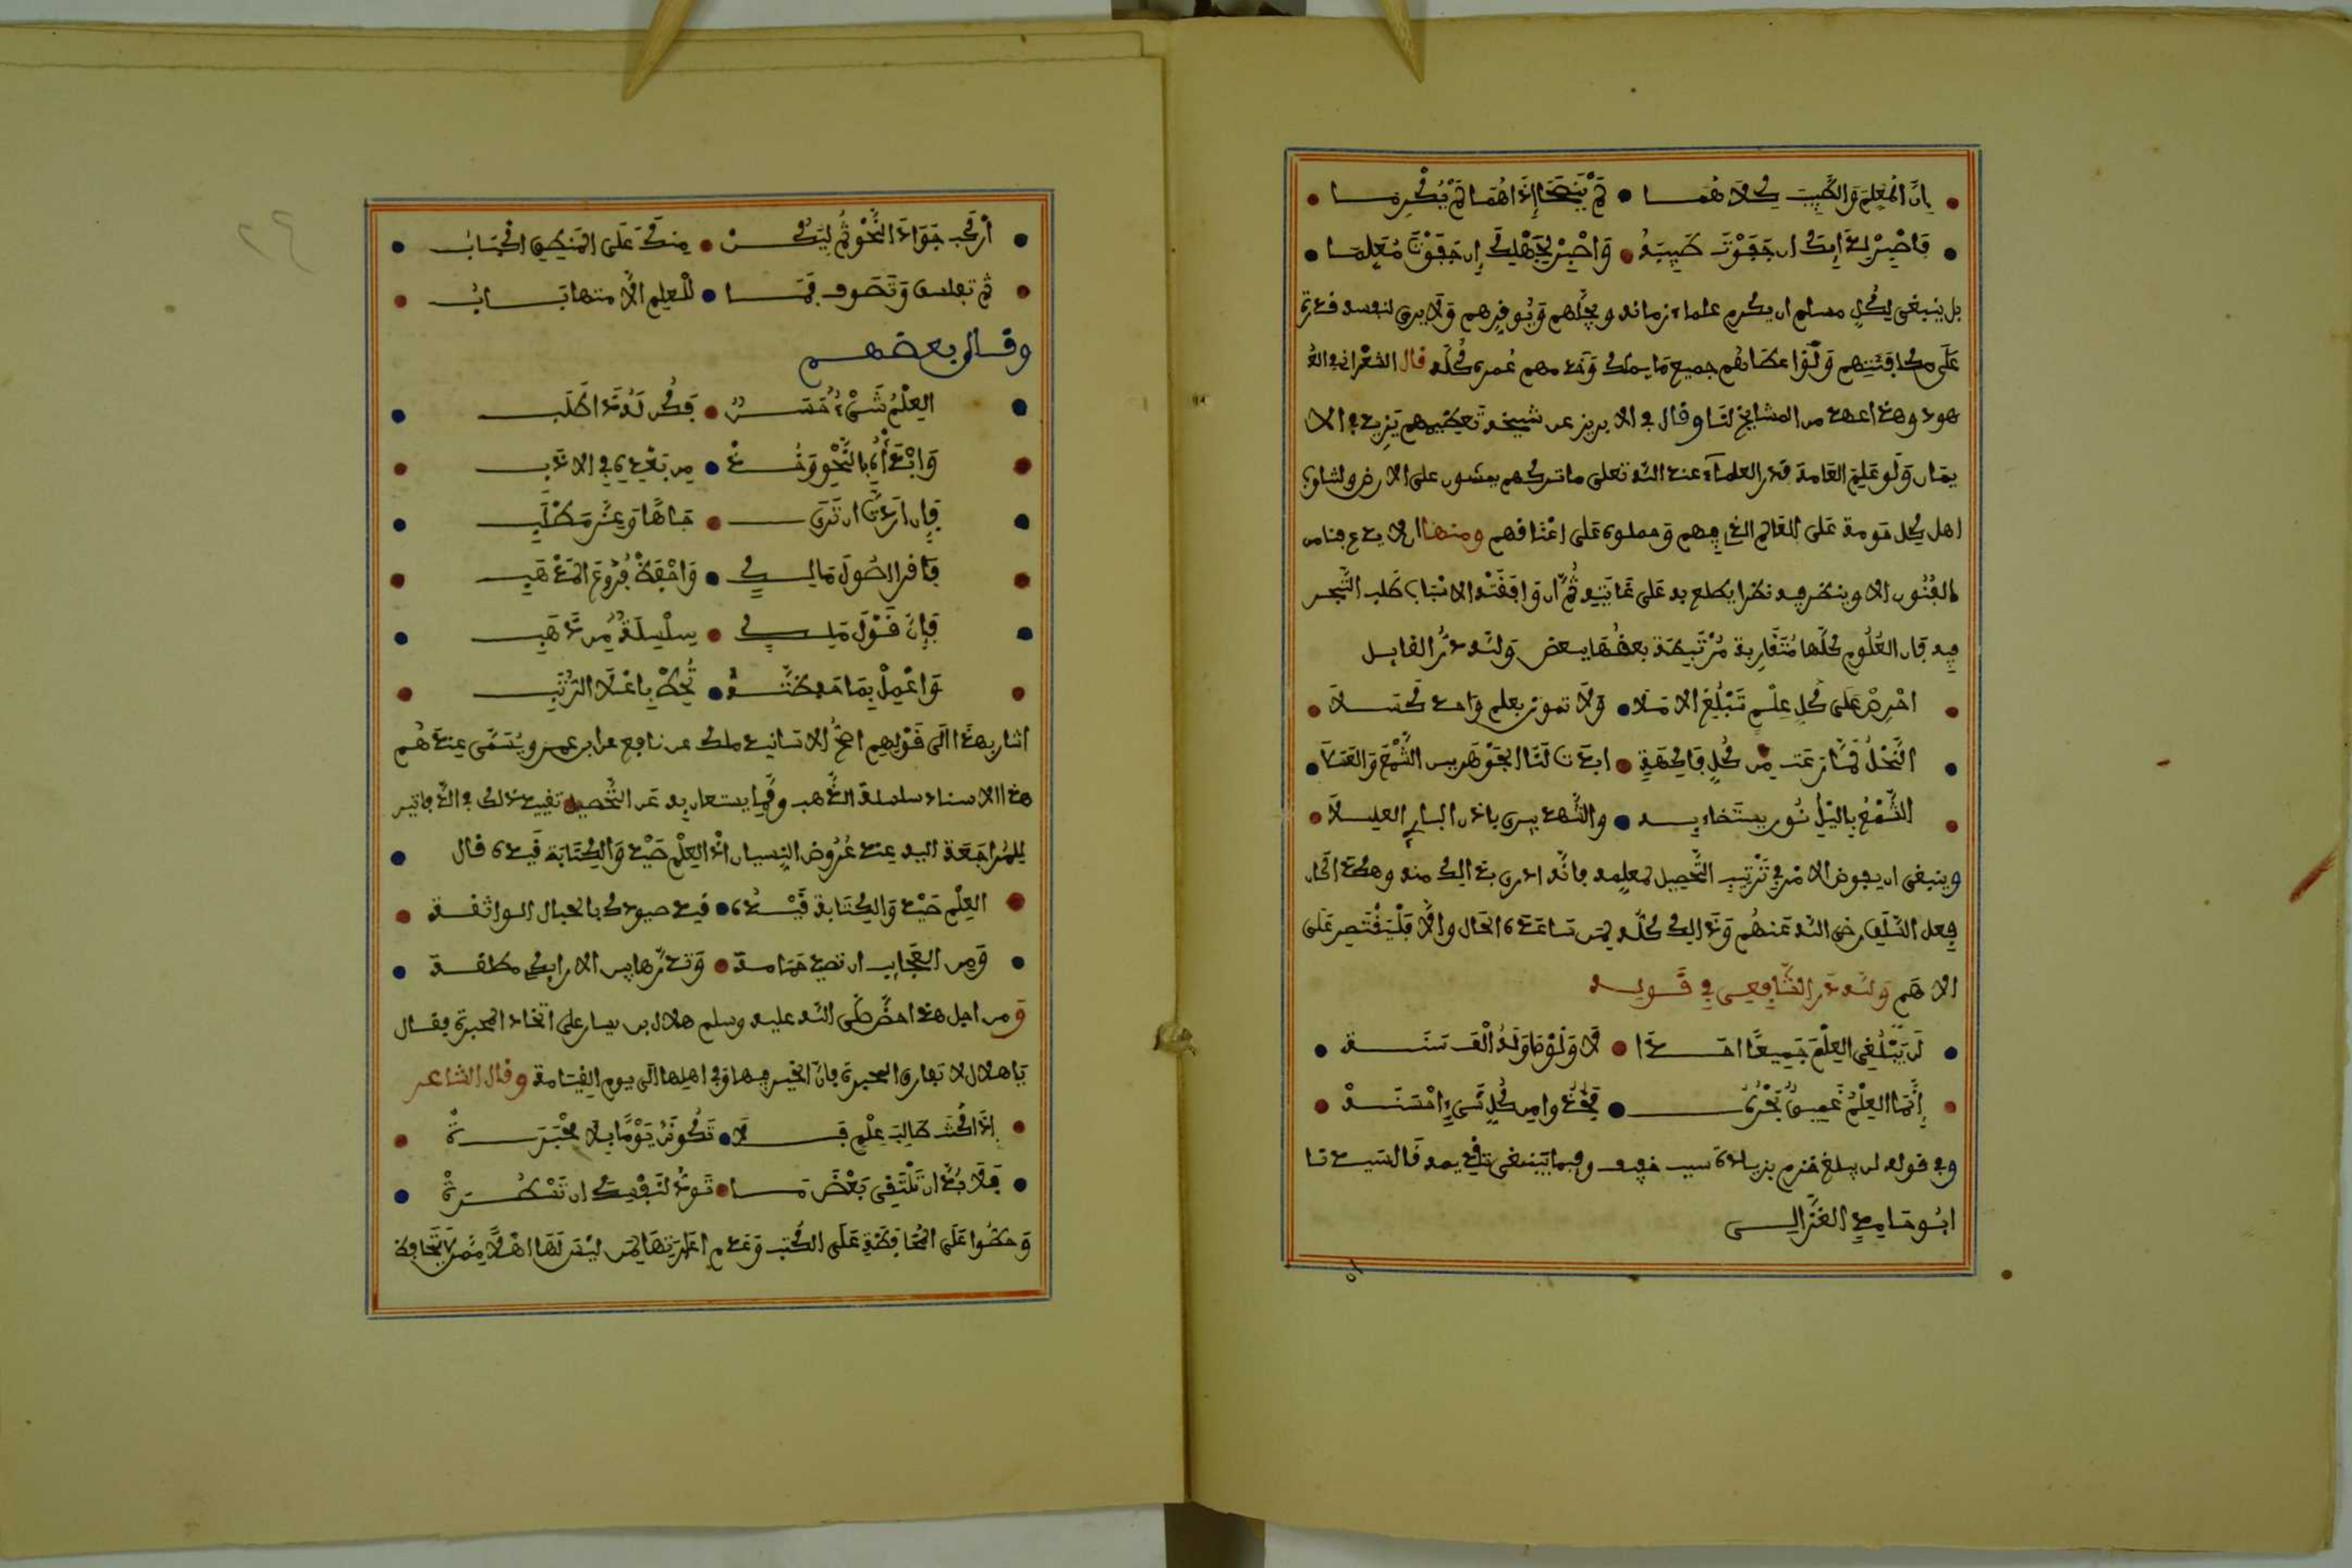 إن المعلم والطبيب كلاهما • لم ينصحا إذا هما لم يكرما
فاصبر لدائك إن جفوت طبيبه • واصبر لجهلك إن جفوت معلما
بل ينبغي لكل مسلم ان يكرم علماء زمانه ويجلهم ويوفرهم ولا يرى لنفسه قدرة
على مكافئتهم ولو اعطاهم جميع ما يملك وخدمهم عمره كله قال الشعراني في العـ
ـهود وهذا عهد من المشايخ لنا وقال في الابريز عن شيخه تعظيمهم يزيد في الا
يمان ولو علم العامة قدر العلماء عند الله تعلى ما تركهم يمشون على الارض ولتناوب
اهل كل حومة على العالم الذي فيهم وحملوه على اعناقهم ومنها ان لا يدع فنا من
الفنون الا وينظر فيه نظرا يطلع به على غايته ثم ان وافقته الاسباب طلب التبحر
فيه فان العلوم كلها متقاربة مرتبطة بعضها ببعض ولله در القايل
احرص على كل علم تبلغ الاملا • ولا تموتن بعلم واحد كسلا
النحل لما رعت من كل فاكهة • ابدت لنا الجوهرين الشمع والعسلا
الشمع باليل نور يستضاء به • والشهد يبري باذن الباري العليلا
وينبغي ان يفوض الامر في ترتيب التحصيل لمعلمه فانه ادرى بذالك منه وهكذا كان
فعل السلف رضي الله عنهم وذالك كله لمن ساعده الحال والا فليقتصر على
الاهم ولله در الشافعي في قوله
لن يبلغ العلم جميعا احدا • لا ولو حاوله الف سنة
إنما العلم عميق بحره • فخذوا من كل شيء احسنه
وفي قوله لن يبلغ خزم بزيادة سبب خفيف وفيما ينبغي تقديمه قال السيد نا
ابو حامد الغزالي
اركب جواد النحو ثم ليكن • منك على المنطق اكباب
ثم تعلمن وتصوف فما • للعلم الا منهما باب
وقال بعضهم
العلم شيء حسن • فكن له ذا طلب
وابدأه بالنحو وخذ • من بعده في الادب
فإن اردت ان ترى • جاها وعز مطلب
فاقر اصول مالك • واحفظ فروع المذهب
فإن قول مالك • سلسلة من ذهب
واعمل بما حفظته • تحظ باعلا الرتب
اشار بهذا الى قولهم اصح الاسانيد ملك عن نافع عن ابن عمر ويسمى عندهم
هذا الاسناد سلسلة الذهب ومما يستعان به عن التحصيل تقييد ذلك في الدفاتير
للمراجعة اليه عند عروض النسيان اذ العلم صيد والكتابة قيده قال
العلم صيد والكتابة قيده • قيد صيودك بالحبال الواثقة
ومن العجايب ان تصيد حمامة • وتذرها بين الارايك مطلقة
ومن اجل هذا حض صلى الله عليه وسلم هلال بن يسار على اتخاذ المحبرة فقال
يا هلال لا تفارق المحبرة فان الخير فيها وفي اهلها الى يوم القيامة وقال الشاعر
إذا كنت طالب علم فلا • تكونن يوما بلا محبرة
فلا بد ان تلتقي بعض ما • تود لنفسك ان تسطره
وحضوا على المحافظة على الكتب وعدم اعارتها لمن ليس لها اهلا ممن لا يحافظ